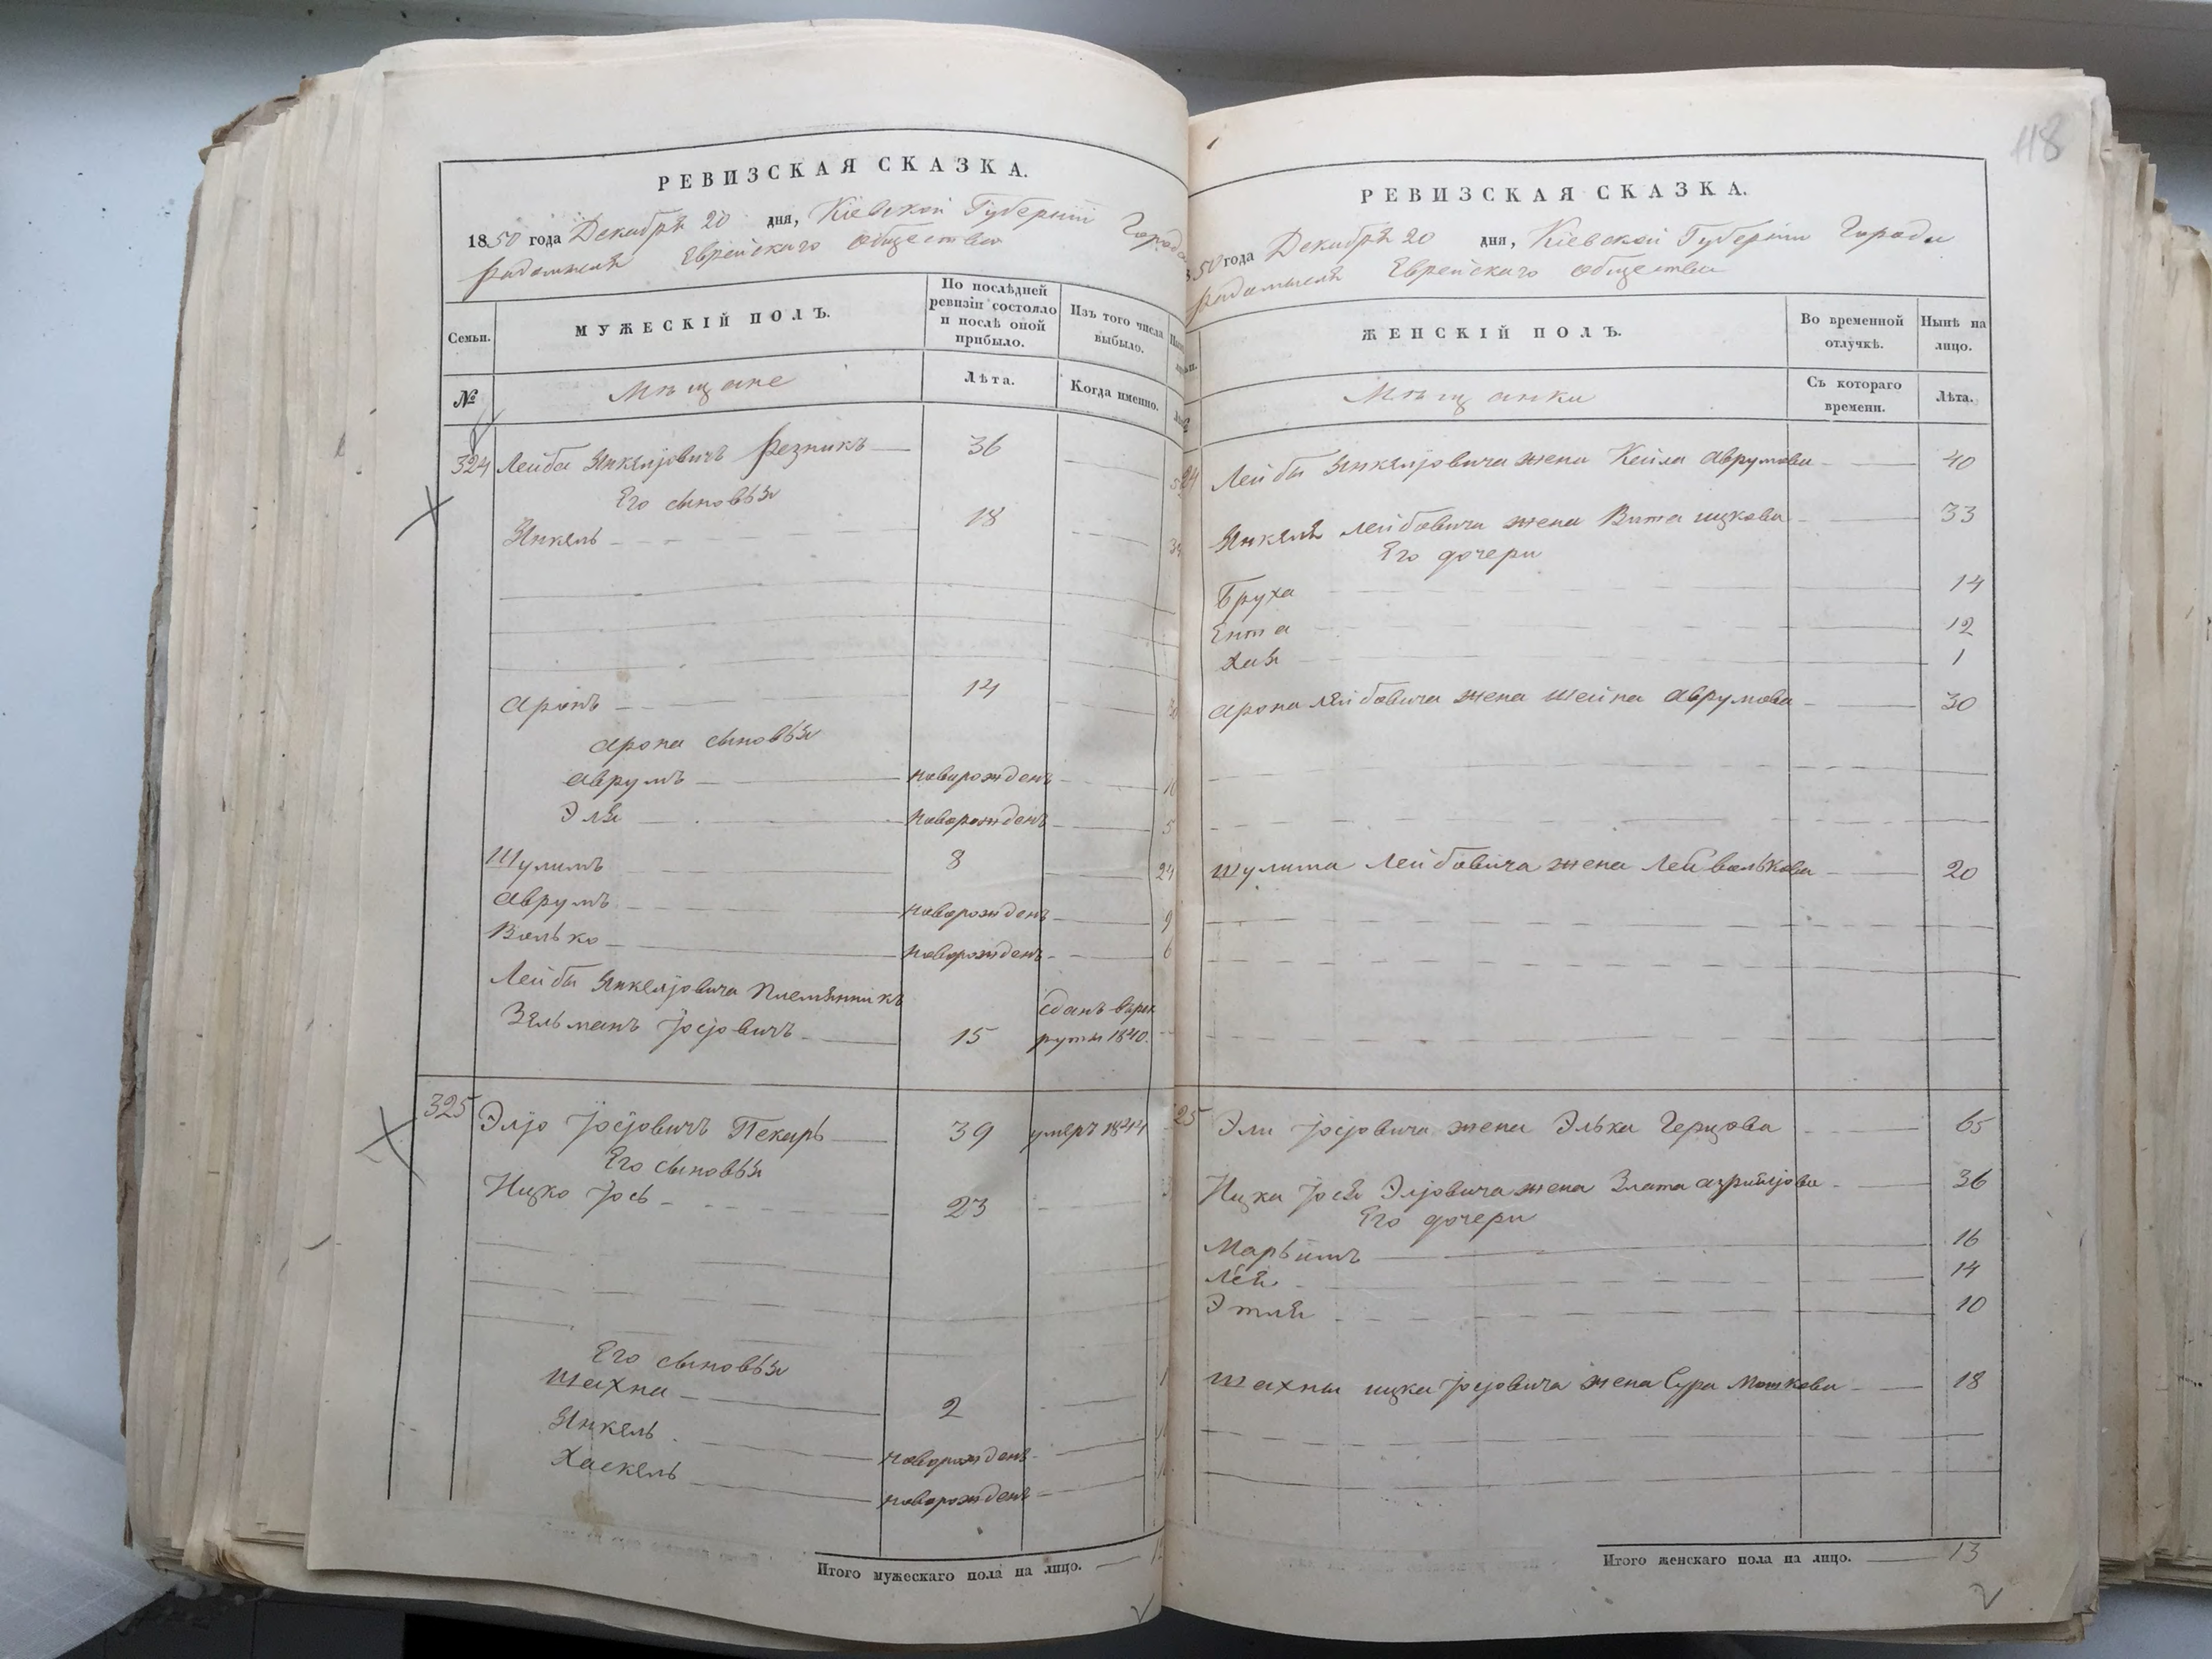 РЕВИЗСКАЯ СКАЗКА.
1850 года Декабря 20 дня, Кіевской Губерніи Города
Радомысля Еврейскаго общества
Семьи.
МУЖЕСКІЙ ПОЛЪ.
По послѣдней ревизіи состояло и послѣ оной прибыло.
Изъ того числа выбыло.
№
Мѣщане
Лѣта.
Когда именно.
324 Лейба Янкелiовичъ Резникъ 36
Его сыновья
Янкель 18
Аронъ 14
Арона сыновья
Аврумъ новорожденъ
Эля новорожденъ 5
Шулимъ 8 24
Аврумъ новорожденъ 9
Волько новорожденъ 6
Лейбы Янкелiовича племянникъ
Зельманъ Iосiовичъ 15 сданъ в рек
руты 1840.
325 Элiо Iосiовичъ Пекарь 39 умеръ 1844
Его сыновья
Ицко Iось 23
Его сыновья
Шахна 2
Янкель новорожденъ
Хаскель новорожденъ
Итого мужескаго пола на лицо.
118
РЕВИЗСКАЯ СКАЗКА.
50 года Декабря 20 дня, Кіевской Губерніи Города
Радомысля Еврейскаго общества
ЖЕНСКІЙ ПОЛЪ.
Во временной отлучкѣ.
Нынѣ на лицо.
Мѣщанки
Съ котораго времени.
Лѣта.
324 Лейбы Янкелiовича жена Кейла Аврумова 40
Янкеля Лейбовича жена Вита Ицкова 33
Его дочери
Бруха 14
Ента 12
Хая 1
Арона Лейбовича жена Шейна Аврумова 30
Шулима Лейбовича жена Лея Волькова 20
25 Эли Iосiовича жена Элька Герцова 65
Ицка Iося Элiовича жена Злата Азрийлiова 36
Его дочери
Марьимъ 16
Лея 14
Этля 10
Шахны Ицка Iосiовича жена Сура Мошкова 18
Итого женскаго пола на лицо. 13